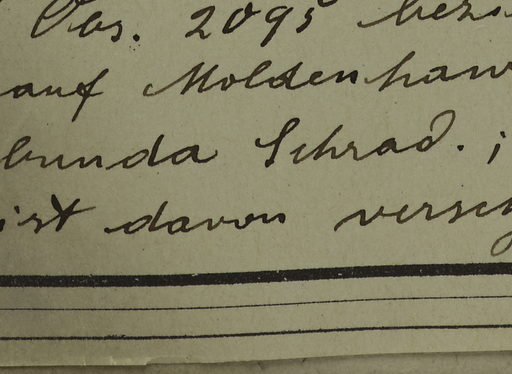 Obs. 2095 bezi
auf Moldenhaw
bunda Schrad. ;
ist davon versch